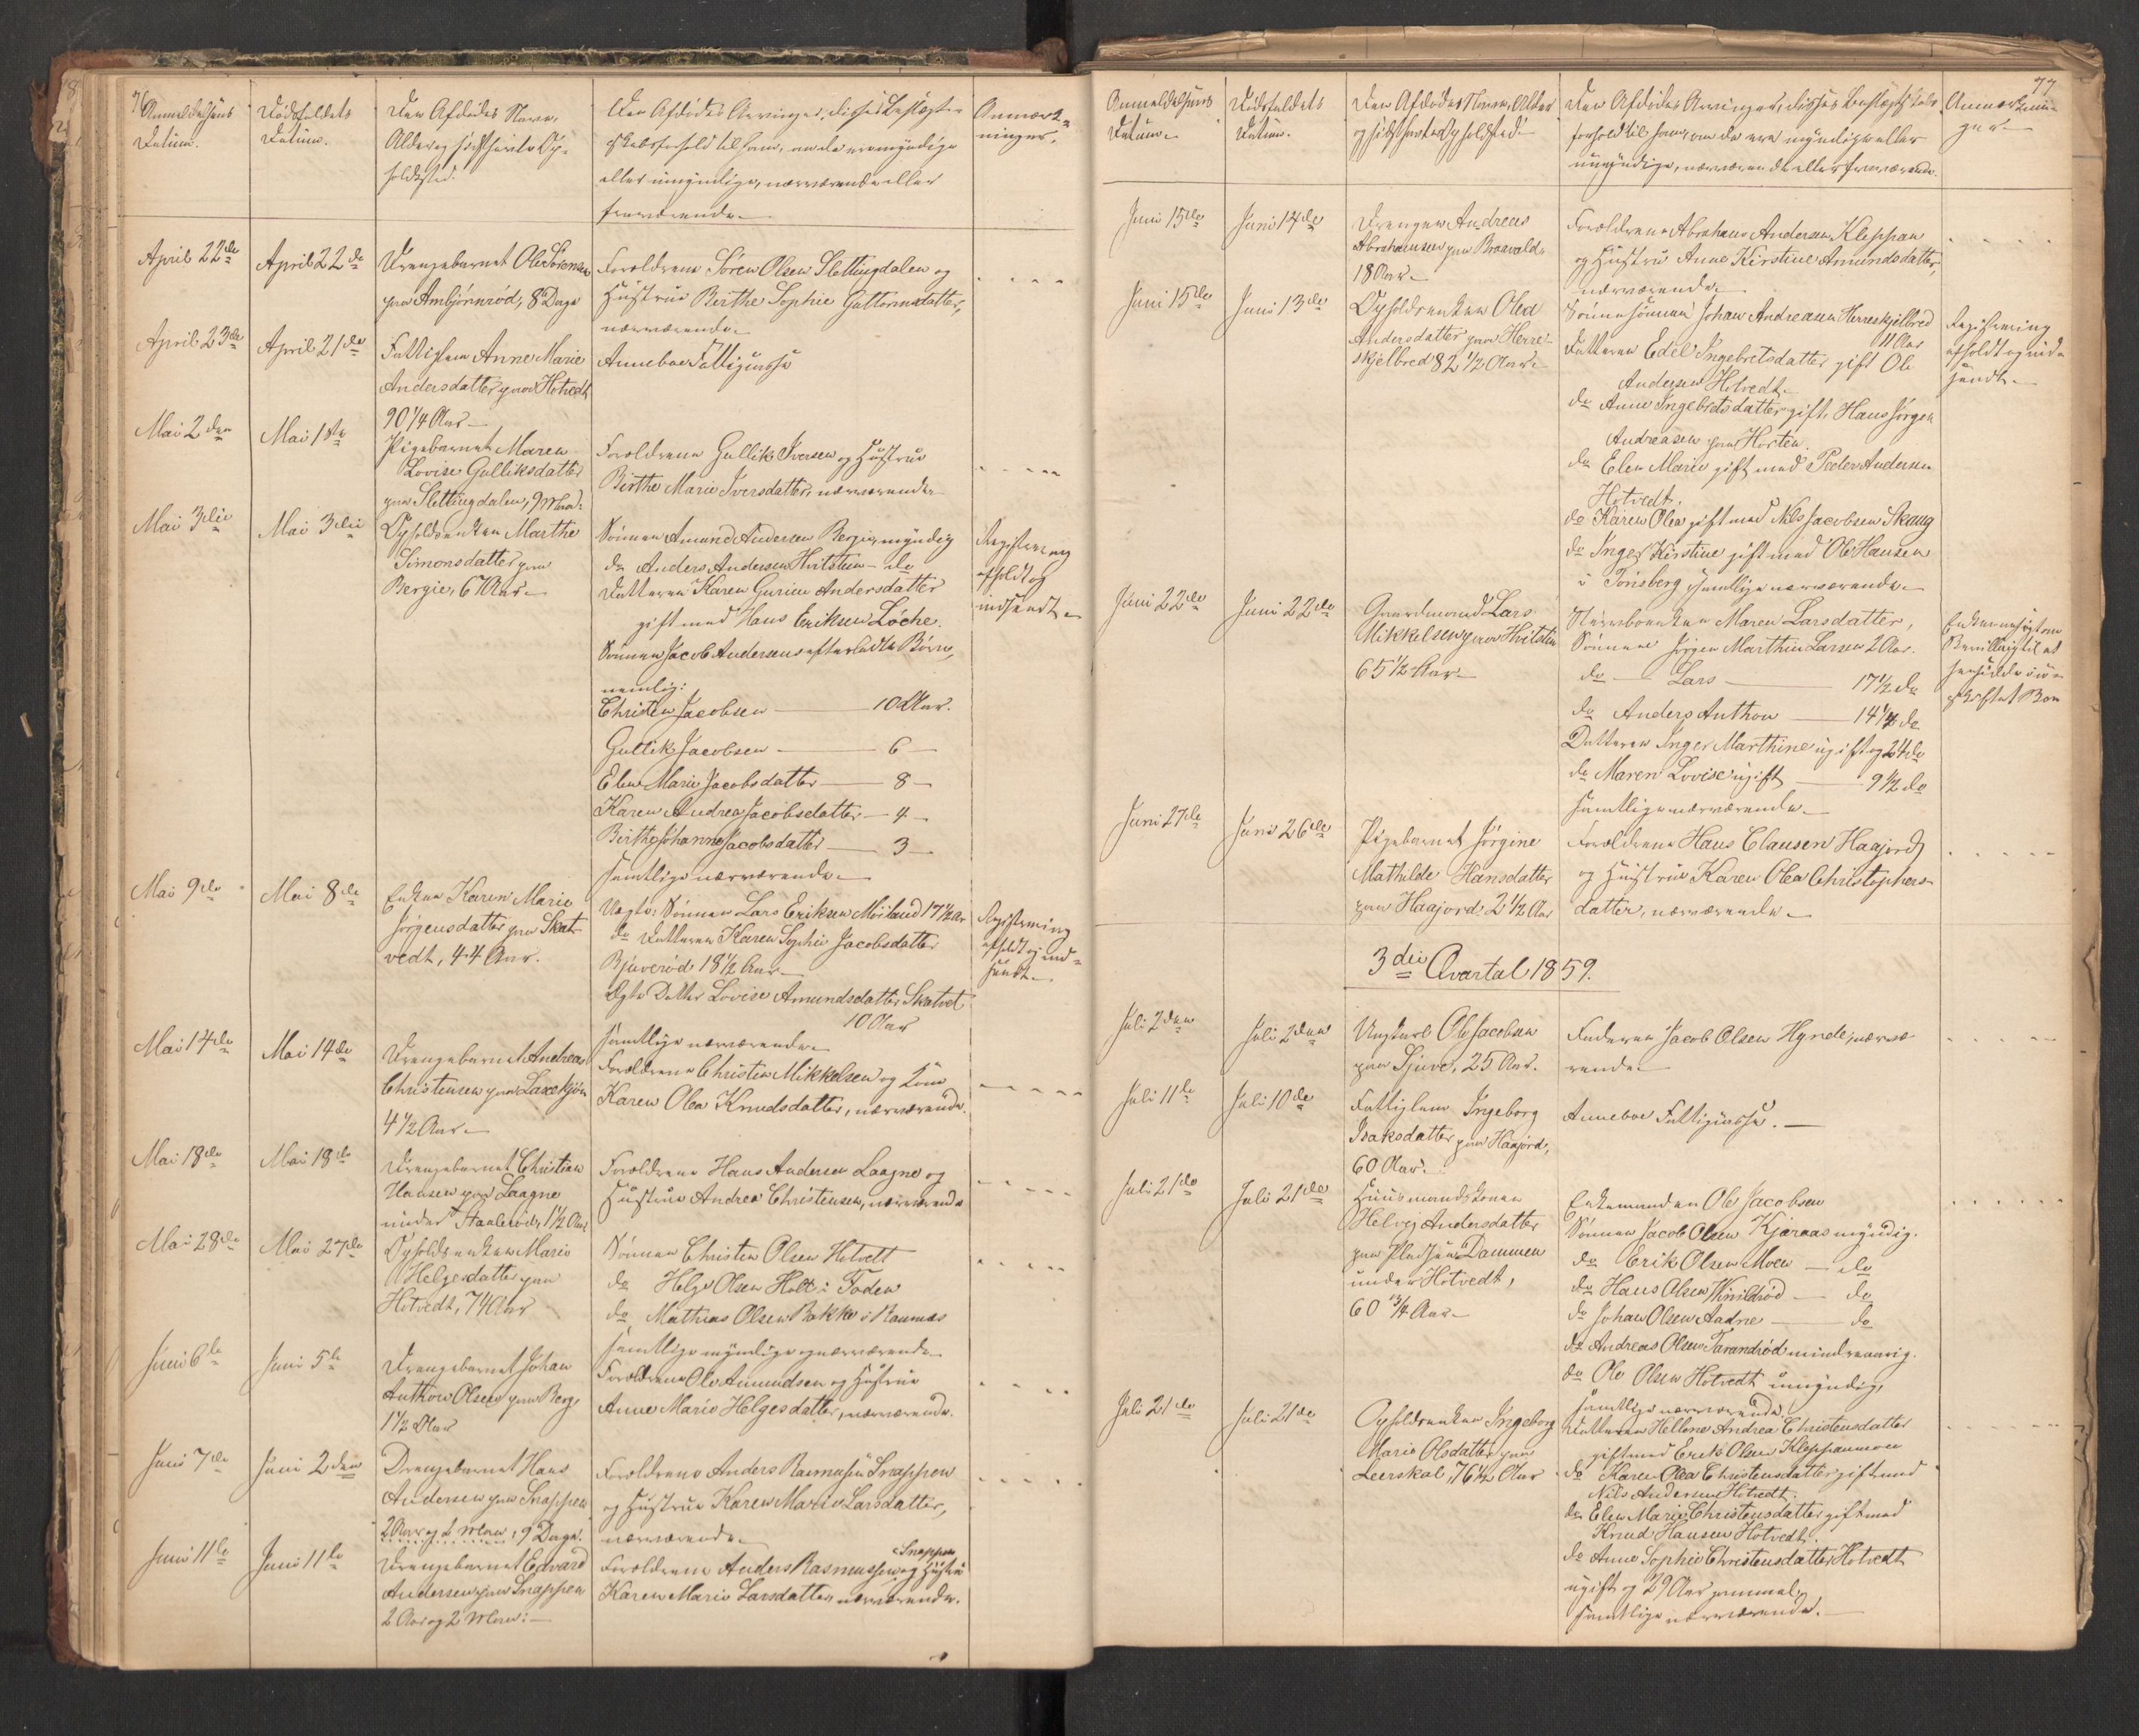 76
Anmeldelsens
Datum.
Dødsfaldets
Datum.
Den Afdødes Navn,
Alder og sidst havte Op-
holdsted.
Den Afdødes Arvinger, disses Beslægt-
skabsforhold til ham, om de ere myndige
eller umyndige, nærværende eller
fraværende.
Anmærk-
ninger.
April 22de
April 22de
Drengebarnet Ole Sørensen
paa Ambjörnröd, 8 Dage
Forældrene Sören Olsen Slettingdalen og
Hustrue Birthe Sophie Guttormsdatter,
nærværende.
April 23de
April 21de
Fattiglem Anne Marie
Andersdatter paa Hotvedt
90 1/4 Aar
Anneboe Fattigcasse
Mai 2den
Mai 1ste
Pigebarnet Maren
Lovise Gulliksdatter
paa Slettingdalen, 9 Mdr:
Forældrene Gullik Iversen og Hustrue
Birthe Marie Iversdatter, nærværende
Mai 3die
Mai 3die
Opholdsenken Marthe
Simonsdatter paa
Bergie, 67 Aar.
Sönnen Amund Andersen Bergie, myndig
do Anders Andersen Hvitsteen - do
Datteren Karen Gurine Andersdatter
gift med Hans Eriksen Löche.
Sönnen Jacob Andersens efterladte Börn,
nemlig:
Christen Jacobsen — 10 Aar.
Gullik Jacobsen — 6 —
Elen Marie Jacobsdatter — 8 —
Karen Andrea Jacobsdatter — 4 —
Birthe Johanne Jacobsdatter — 3 —
samtlige nærværende.
Registrering
afholdt og
indsendt.
Mai 9de
Mai 8de
Enken Karen Marie
Jörgensdatter paa Skat-
vedt, 44 Aar.
Uægte: Sönnen Lars Eriksen Möiland 17 1/2 Aar
do Datteren Karen Sophie Jacobsdatter
Bjuveröd 18 1/2 Aar
Ægte Datter Lovise Amundsdatter Skatvet
10 Aar
samtlige nærværende.
Registrering
afholdt og ind-
sendt.
Mai 14de
Mai 14de
Drengebarnet Andreas
Christensen paa Laxekjön
4 1/2 Aar.
Forældrene Christen Mikkelsen og Kone
Karen Olea Knudsdatter, nærværende.
Mai 18de
Mai 18de
Drengebarnet Christian
Hansen paa Laagne
under Haaleröd, 1 1/2 Aar
Forældrene Hans Andersen Laagne og
Hustrue Andrea Christensen, nærværende
Mai 28de
Mai 27de
Opholdsenken Marie
Helgesdatter paa
Hotvedt, 74 Aar
Sönnen Christen Olsen Hotvett
do Helge Olsen Holt i Foden
do Mathias Olsen Bakke i Ramnæs
samtlige myndige og nærværende
Juni 6te
Juni 5te
Drengebarnet Johan
Anthon Olsen paa Berg,
1 1/2 Aar
Forældrene Ole Amundsen og Hustrue
Anne Marie Helgesdatter, nærværende.
Juni 7de
Juni 2den
Drengebarnet Hans
Andersen paa Snappen
2 Aar og 2 Mdr, 9 Dage.
Forældrene Anders Rasmusen Snappen
og Hustrue Karen Marie Larsdatter,
nærværende.
Juni 11te
Juni 11te
Drengebarnet Edvard
Andersen paa Snappen
2 Aar og 2 Mdr:
Snappen
Forældrene Anders Rasmussen og Hustru
Karen Marie Larsdatter, nærværende.
77
Anmeldelsens
Datum.
Dödsfaldets
Datum.
Den Afdödes Navn, Alder
og sidst havte Opholdsted.
Den Afdödes Arvinger, disses Beslægtskabs-
forhold til ham, om de ere myndige eller
umyndige, nærværende eller fraværende.
Anmærknin-
ger.
Juni 15de
Juni 14de
Drengen Andreas
Abrahamsen paa Braavold,
18 Aar.
Forældrene Abraham Andersen Kleppan
og Hustrue Anne Kirstine Amundsdatter,
nærværende.
Juni 15de
Juni 13de
Opholdsenken Olea
Andersdatter paa Herre-
skjelbred 82 1/2 Aar.
Sönnesönnen Johan Andreasen Herreskjelbred
11 Aar
Datteren Edel Ingebretsdatter gift Ole
Andersen Hotvedt.
do Anne Ingebretsdatter gift Hans Jörgen
Andreasen paa Horten.
do Elen Marie gift med Peder Andersen
Hotvedt.
do Karen Olea gift med Nils Jacobsen Skaug
do Inger Kirstine gift med Ole Hansen
i Tönsberg, samtlige nærværende.
Registrering
afholdt og ind-
sendt.
Juni 22de
Juni 22de
Gaardmand Lars
Mikkelsen paa Hvitsteen
65 1/2 Aar.
Stervboenken Maren Larsdatter,
Sönnen Jörgen Marthin Larsen 2 Aar.
do — Lars — 17 1/2 do
do Anders Anthon — 14 1/2 do
Datteren Inger Marthine ugift og 24 do
do Maren Lovise ugift — 9 1/2 do
samtlige nærværende.
Enken ansögt om
Bevilling til at
hensidde i u-
skiftet Boe
Juni 27de
Juni 26de
Pigebarnet Jörgine
Mathilde Hansdatter
paa Haajord 2 1/2 Aar
Forældrene Hans Clausen Haajord
og Hustrue Karen Olea Christophers-
datter, nærværende.
3die Qvartal 1859.
Juli 2den
Juli 2den
Ungkarl Ole Jacobsen
paa Sjuve, 25 Aar.
Faderen Jacob Olsen Hynde, nærvæ-
rende.
Juli 11te
Juli 10de
Fattiglem Ingeborg
Isaksdatter paa Haajord,
60 Aar.
Anneboe Fattigcasse.
Juli 21de
Juli 21de
Huusmandskonen
Helvig Andersdatter
paa Pladsen Dammen
under Hotvedt,
60 3/4 Aar.
Enkemanden Ole Jacobsen
Sönnen Jacob Olsen Kjæraas myndig.
do Erik Olsen Moen — do
do Hans Olsen Knildröd — do
do Johan Olsen Aadne — do
do Andreas Olsen Tarandröd mindreaarig.
do Ole Olsen Hotvedt umyndig,
samtlige nærværende.
Juli 21de
Juli 21de
Opholdsenken Ingeborg
Marie Olsdatter paa
Leerskal, 76 1/2 Aar
Datteren Hellene Andrea Christensdatter
gift med Erik Olsen Kleppanmoen
do Karen Olea Christensdatter gift med
Nils Andersen Hotvedt.
do Elen Marie Christensdatter gift med
Knud Hansen Hotvedt.
do Anne Sophie Christensdatter Hotvedt
ugift og 29 Aar gammel,
samtlige nærværende.